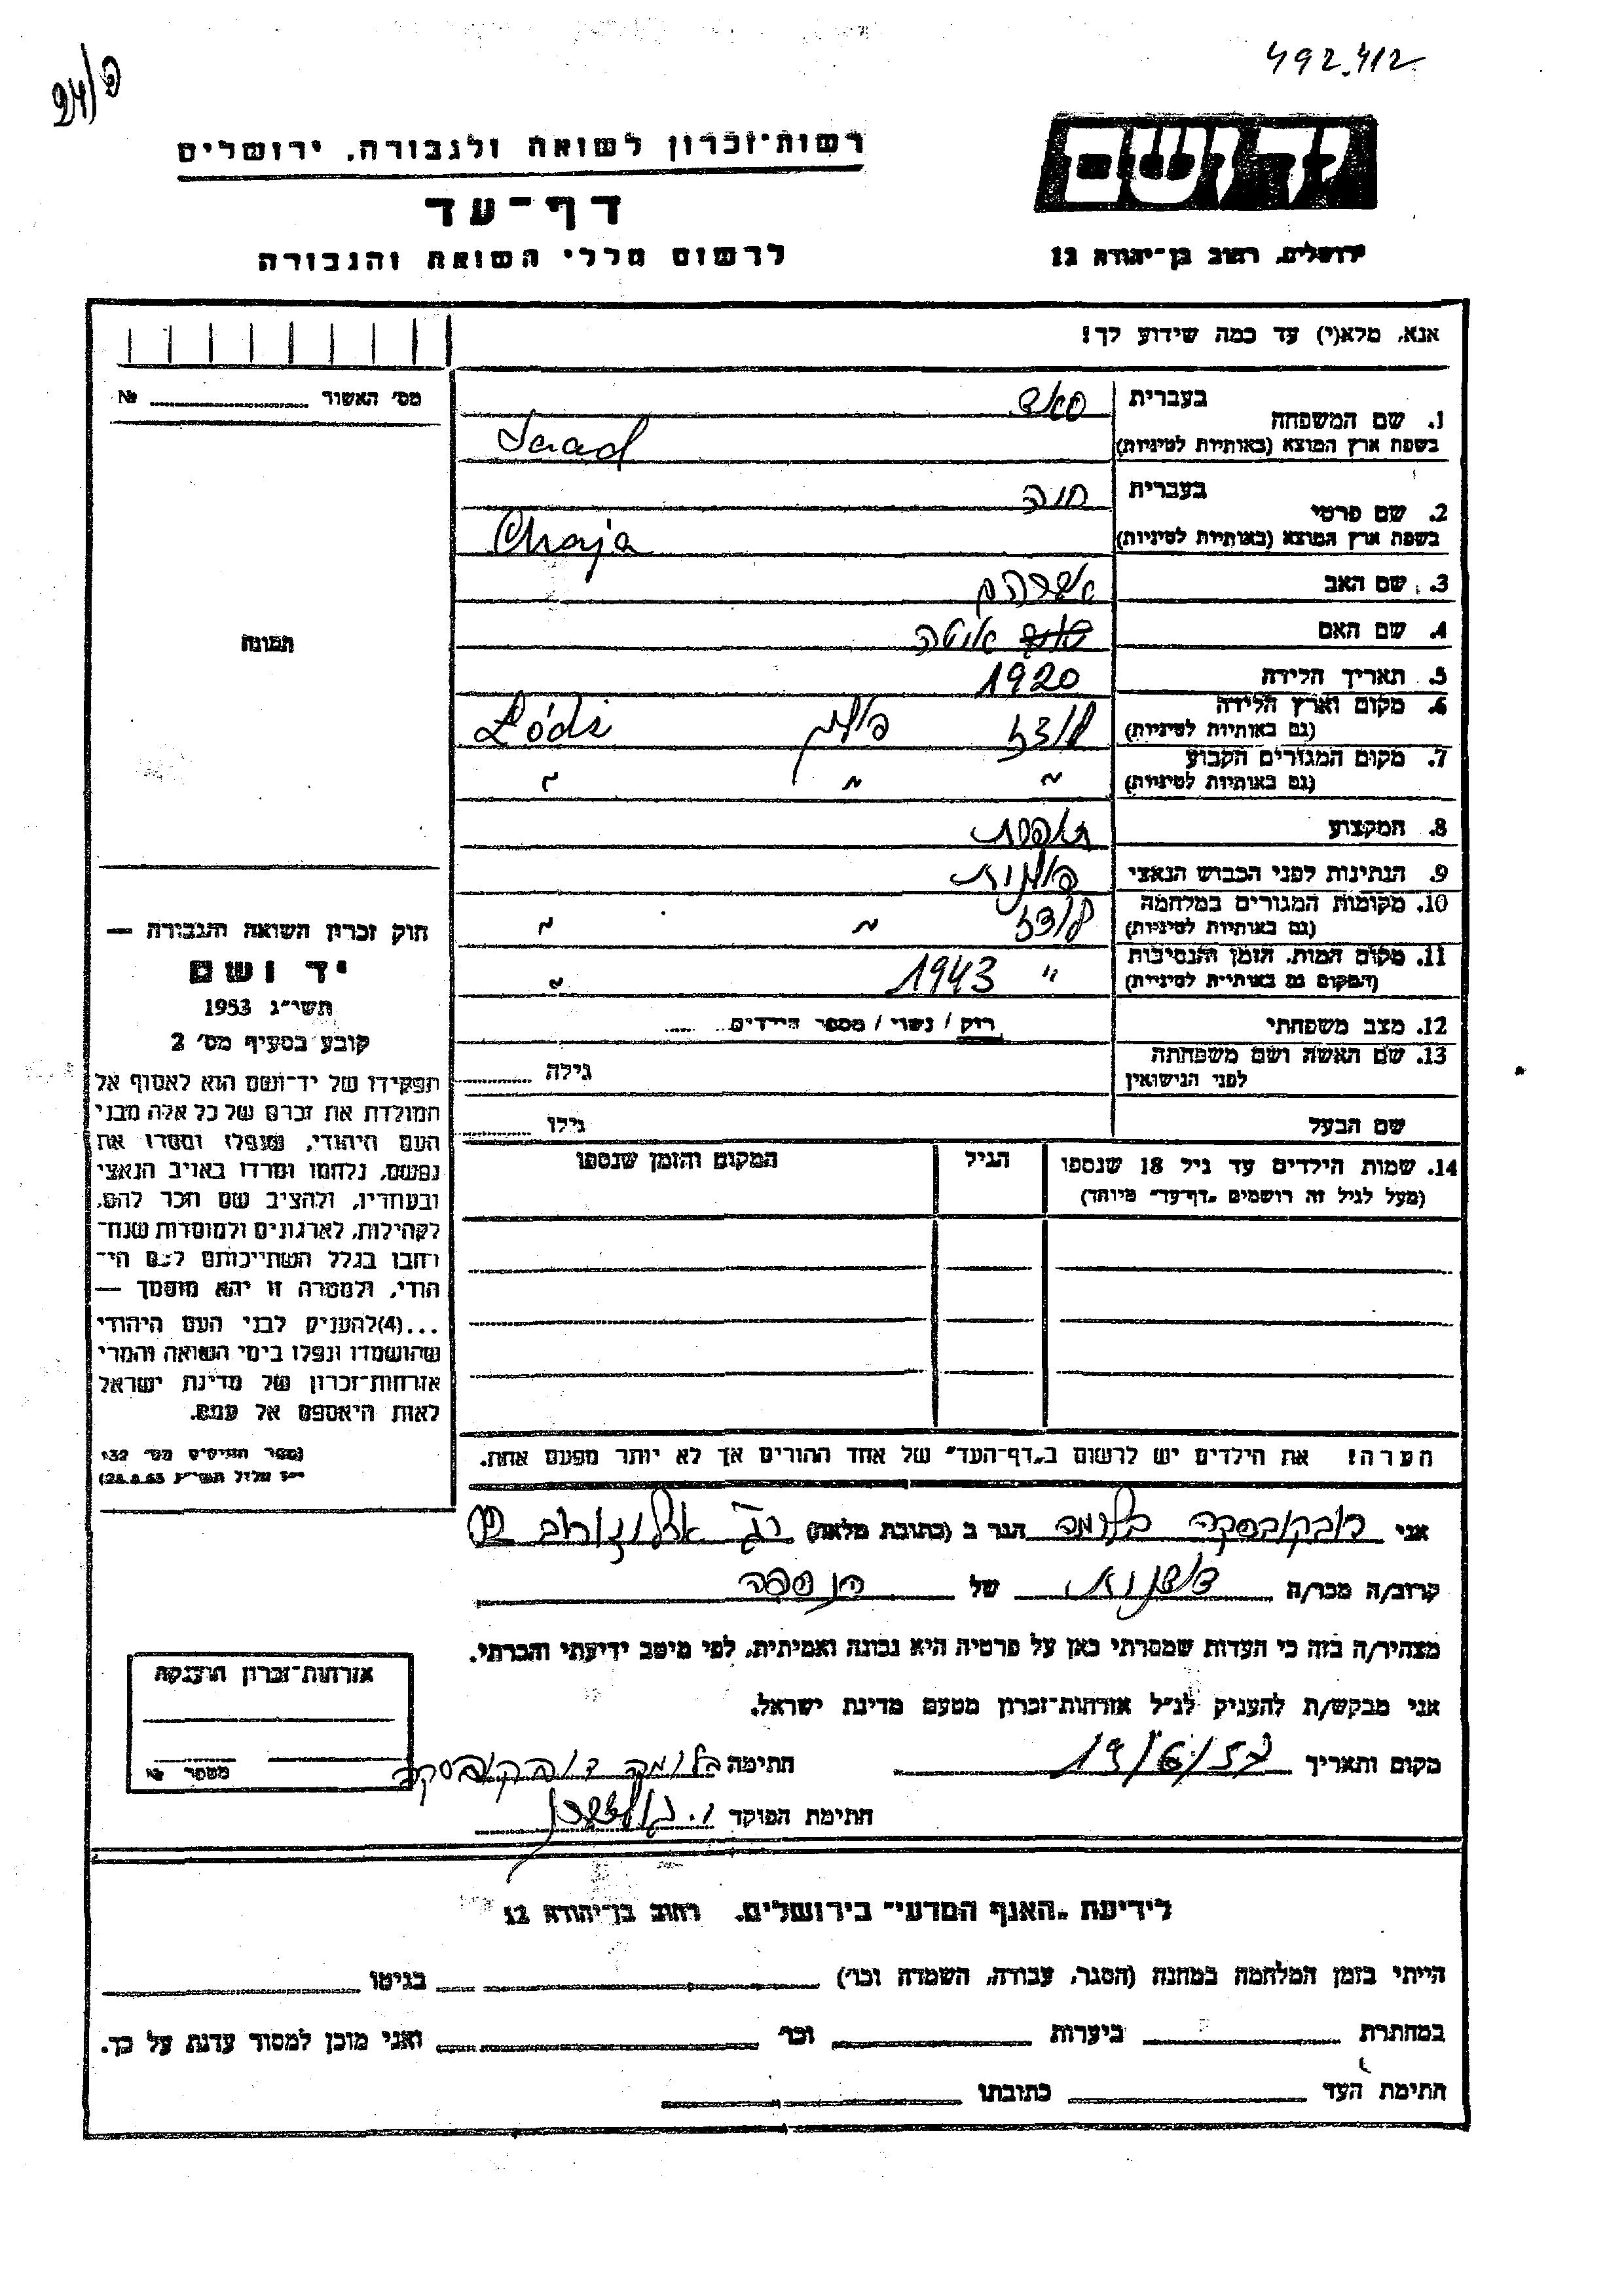 492.412
24/פ
יד ושם
רשות־זכרון לשואה ולגבורה, ירושלים
דף־עד
ירושלים, רחוב בן־יהודה 12
לרשום חללי השואה והגבורה
אנא, מלא(י) עד כמה שידוע לך!
מס׳ האשור № 
1. שם המשפחה
בעברית סאד
בשפת ארץ המוצא (באותיות לטיניות) Saad
2. שם פרטי
בעברית חיה
בשפת ארץ המוצא (באותיות לטיניות) Chaja
3. שם האב אברהם
4. שם האם אוטה
תמונה
5. תאריך הלידה 1920
6. מקום וארץ הלידה
(גם באותיות לטיניות) לודז פולין Łódź
7. מקום המגורים הקבוע
(גם באותיות לטיניות) " " "
8. המקצוע תופרת
9. הנתינות לפני הכבוש הנאצי פולנית
10. מקומות המגורים במלחמה
(גם באותיות לטיניות) לודז " "
11. מקום המות, הזמן והנסיבות
(המקום גם באותיות לטיניות) " 1943 "
12. מצב משפחתי רוק / נשוי / מספר הילדים
13. שם האשה ושם משפחתה
לפני הנישואין גילה
שם הבעל גילו
14. שמות הילדים עד גיל 18 שנספו הגיל המקום והזמן שנספו
(מעל לגיל זה רושמים „דף־עד״ מיוחד)
הערה! את הילדים יש לרשום ב„דף־העד״ של אחד ההורים אך לא יותר מפעם אחת.
חוק זכרון השואה והגבורה —
יד ושם
תשי״ג 1953
קובע בסעיף מס׳ 2
תפקידו של יד־ושם הוא לאסוף אל
המולדת את זכרם של כל אלה מבני
העם היהודי, שנפלו ומסרו את
נפשם, נלחמו ומרדו באויב הנאצי
ובעוזריו, ולהציב שם וזכר להם,
לקהילות, לארגונים ולמוסדות שנח־
רבו בגלל השתייכותם לעם הי־
הודי, ולמטרה זו יהא מוסמך —
...(4)להעניק לבני העם היהודי
שהושמדו ונפלו בימי השואה והמרי
אזרחות־זכרון של מדינת ישראל
לאות היאספם אל עמם.
(ספר החוקים מס׳ 132
28.8.53)
אני דובקובסקה בלומה הגר ב (כתובת מלאה) רג ארלוזורוב
קרוב/ה מכר/ה של הנספה
מצהיר/ה בזה כי העדות שמסרתי כאן על פרטיה היא נכונה ואמיתית, לפי מיטב ידיעתי והכרתי.
אני מבקש/ת להעניק לנ״ל אזרחות־זכרון מטעם מדינת ישראל.
מקום ותאריך 19/6/57 חתימה בלומה דובקובסקה
חתימת הפוקד
אזרחות־זכרון הוענקה
מספר №
לידיעת „האגף המדעי״ בירושלים, רחוב בן־יהודה 12
הייתי בזמן המלחמה במחנה (הסגר, עבודה, השמדה וכו׳) בגיטו
במחתרת ביערות וכו׳ ואני מוכן למסור עדות על כך.
חתימת העד כתובתו